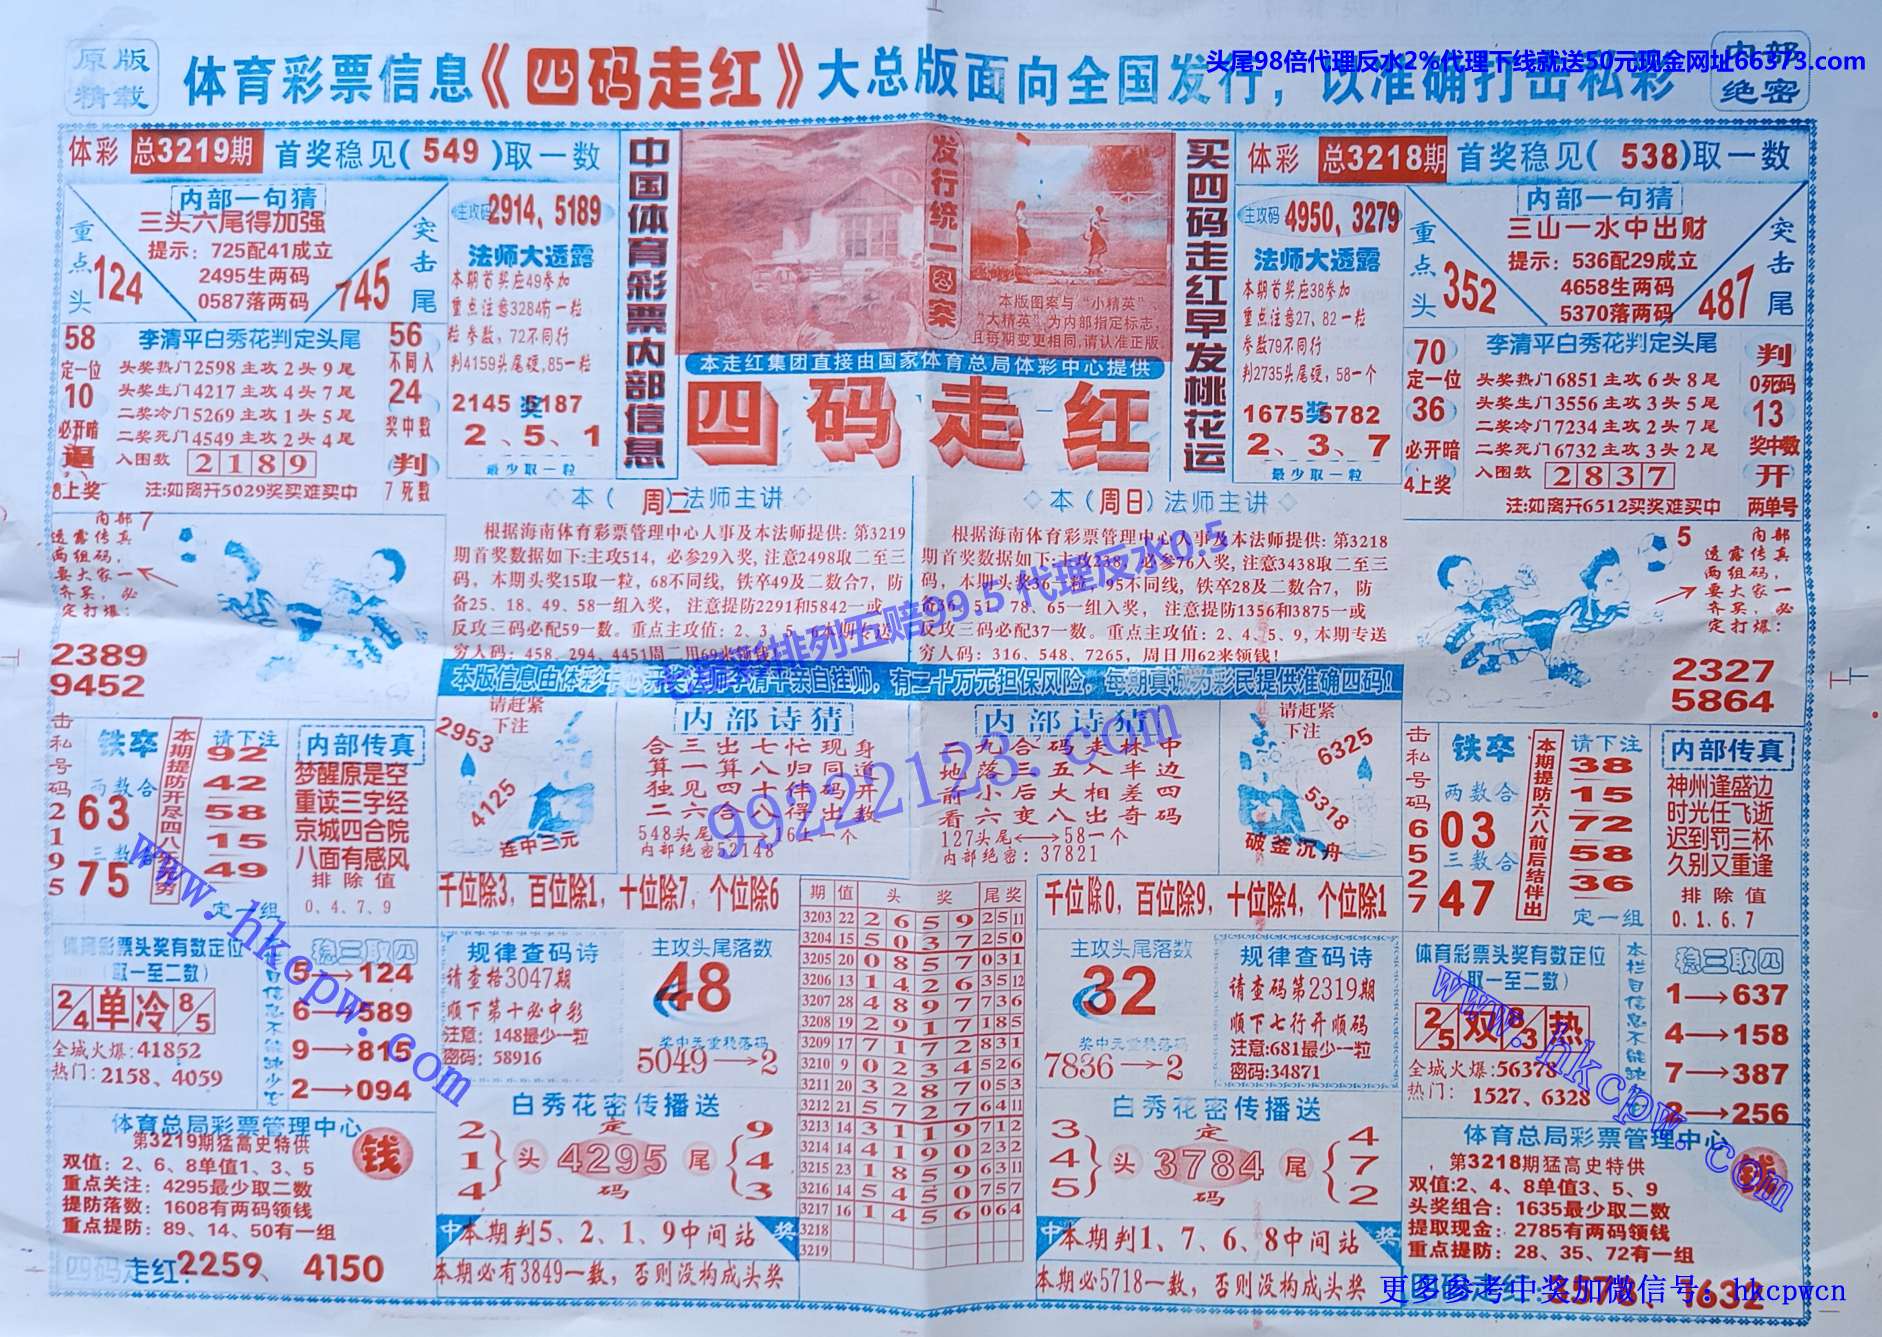 原版
精载
体育彩票信息《四码走红》大总版面向全国发行，以准确打击私彩
内部
绝密
头尾98倍代理反水2%代理下线就送50元现金网址66373.com
体彩 总3219期 首奖稳见(549)取一数
内部一句猜
三头六尾得加强
提示：725配41成立
2495生两码
0587落两码
重点头
124
突击尾
745
主攻码 2914、5189
法师大透露
本期首奖应49参加
重点注意3284有一粒
粒参数，72不同行
判4159头尾硬，85一粒
2145奖5187
2、5、1
最少取一粒
58
定一位
10
必开暗
逼
8上奖
李清平白秀花判定头尾
头奖热门2598主攻2头9尾
头奖生门4217主攻4头7尾
二奖冷门5269主攻1头5尾
二奖死门4549主攻2头4尾
入围数 2189
注:如离开5029奖买难买中
56
不同入
24
奖中数
判
7死数
中国体育彩票内部信息
发行统一图案
本版图案与“小精英”、
“大精英”为内部指定标志，
且每期变更相同，请认准正版
本走红集团直接由国家体育总局体彩中心提供
四码走红
买四码走红早发桃花运
体彩 总3218期 首奖稳见(538)取一数
主攻码 4950、3279
法师大透露
本期首奖应38参加
重点注意27、82一粒
参数79不同行
判2735头尾硬，58一个
1675奖5782
2、3、7
最少取一粒
内部一句猜
三山一水中出财
提示：536配29成立
4658生两码
5370落两码
重点头
352
突击尾
487
70
定一位
36
必开暗
4上奖
李清平白秀花判定头尾
头奖热门6851主攻6头8尾
头奖生门3556主攻3头5尾
二奖冷门7234主攻2头7尾
二奖死门6732主攻3头2尾
入围数 2837
注:如离开6512买奖难买中
判
0死码
13
奖中数
开
两单号
内部
透露传真
两组码，
要大家一
齐买，必
定打爆：
7
2389
9452
本（周二）法师主讲
根据海南体育彩票管理中心人事及本法师提供：第3219
期首奖数据如下:主攻514，必参29入奖，注意2498取二至三
码，本期头奖15取一粒，68不同线，铁卒49及二数合7，防
备25、18、49、58一组入奖， 注意提防2291和5842一或
反攻三码必配59一数。重点主攻值：2、3、5、6本期专送
穷人码：458、294、4451周二用69来领钱！
本（周日）法师主讲
根据海南体育彩票管理中心人事及本法师提供：第3218
期首奖数据如下:主攻238，必参76入奖，注意3438取二至三
码，本期头奖36一粒，95不同线，铁卒28及二数合7，防
备36、51、78、65一组入奖， 注意提防1356和3875一或
反攻三码必配37一数。重点主攻值：2、4、5、9，本期专送
穷人码：316、548、7265，周日用62来领钱！
5
内部
透露传真
两组码，
要大家一
齐买，必
定打爆：
2327
5864
本版信息由体彩中心开奖法师李清平亲自挂帅，有二十万元担保风险，每期真诚为彩民提供准确四码！
击私号码2195
铁卒
两数合
63
三数合
75
本期提防开尽四八死无穷
请下注
92
42
58
15
49
定一组
内部传真
梦醒原是空
重读三字经
京城四合院
八面有感风
排除值
0、4、7、9
请赶紧
下注
2953
4125
连中三元
内部诗猜
合三出七忙现身
算一算八归同道
独见四十伴码开
二六合八得出数
548头尾⟷162一个
内部绝密52148
内部诗猜
一九合码走林中
地落三五入半边
前小后大相差四
看六变八出奇码
127头尾⟷58一个
内部绝密：37821
请赶紧
下注
6325
5318
破釜沉舟
击私号码6527
铁卒
两数合
03
三数合
47
本期提防六八前后结伴出
请下注
38
15
72
58
36
定一组
内部传真
神州逢盛边
时光任飞逝
迟到罚三杯
久别又重逢
排除值
0、1、6、7
千位除3，百位除1，十位除7，个位除6
千位除0，百位除9，十位除4，个位除1
期 值 头奖 尾奖
3203 22 2659 25 11
3204 15 5037 250
3205 20 0857 031
3206 13 1426 35 12
3207 28 4897 736
3208 19 2917 185
3209 17 7172 831
3210 9 0234 526
3211 20 3287 053
3212 21 5727 64 11
3213 14 3119 712
3214 14 4190 232
3215 23 1859 63 11
3216 14 5450 757
3217 16 1456 064
3218
3219
体育彩票头奖有数定位
(取一至二数)
2/4 单冷 8/5
全城火爆:41852
热门:2158、4059
稳三取四
5→124
6→589
9→815
2→094
规律查码诗
请查格3047期
顺下第十必中彩
注意：148最少一粒
密码：58916
主攻头尾落数
48
奖中天重稳落码
5049→2
主攻头尾落数
32
奖中天重稳落码
7836→2
规律查码诗
请查码第2319期
顺下七行开顺码
注意:681最少一粒
密码:34871
体育彩票头奖有数定位
取一至二数)
2/5 双 8/3 热
全城火爆:56378
热门： 1527、6328
本栏目信息不能缺少它
稳三取四
1→637
4→158
7→387
2→256
体育总局彩票管理中心
第3219期猛高史特供
双值：2、6、8单值1、3、5
重点关注：4295最少取二数
提防落数：1608有两码领钱
重点提防：89、14、50有一组
钱
四码走红:2259、4150
白秀花密传播送
2 1 4 头 定 4295 码 尾 9 4 3
中 本期判5、2、1、9中间站 奖
本期必有3849一数，否则没构成头奖
白秀花密传播送
3 4 5 头 定 3784 码 尾 4 7 2
中 本期判1、7、6、8中间站 奖
本期必5718一数，否则没构成头奖
体育总局彩票管理中心
第3218期猛高史特供
双值:2、4、8单值3、5、9
头奖组合：1635最少取二数
提取现金：2785有两码领钱
重点提防：28、35、72有一组
钱
四码走红:8578、1632
排列五赔99.5 代理反水0.5
99222123.com
www.hkcpw.com
www.hkcpw.com
更多参考中奖加微信号：hkcpwcn